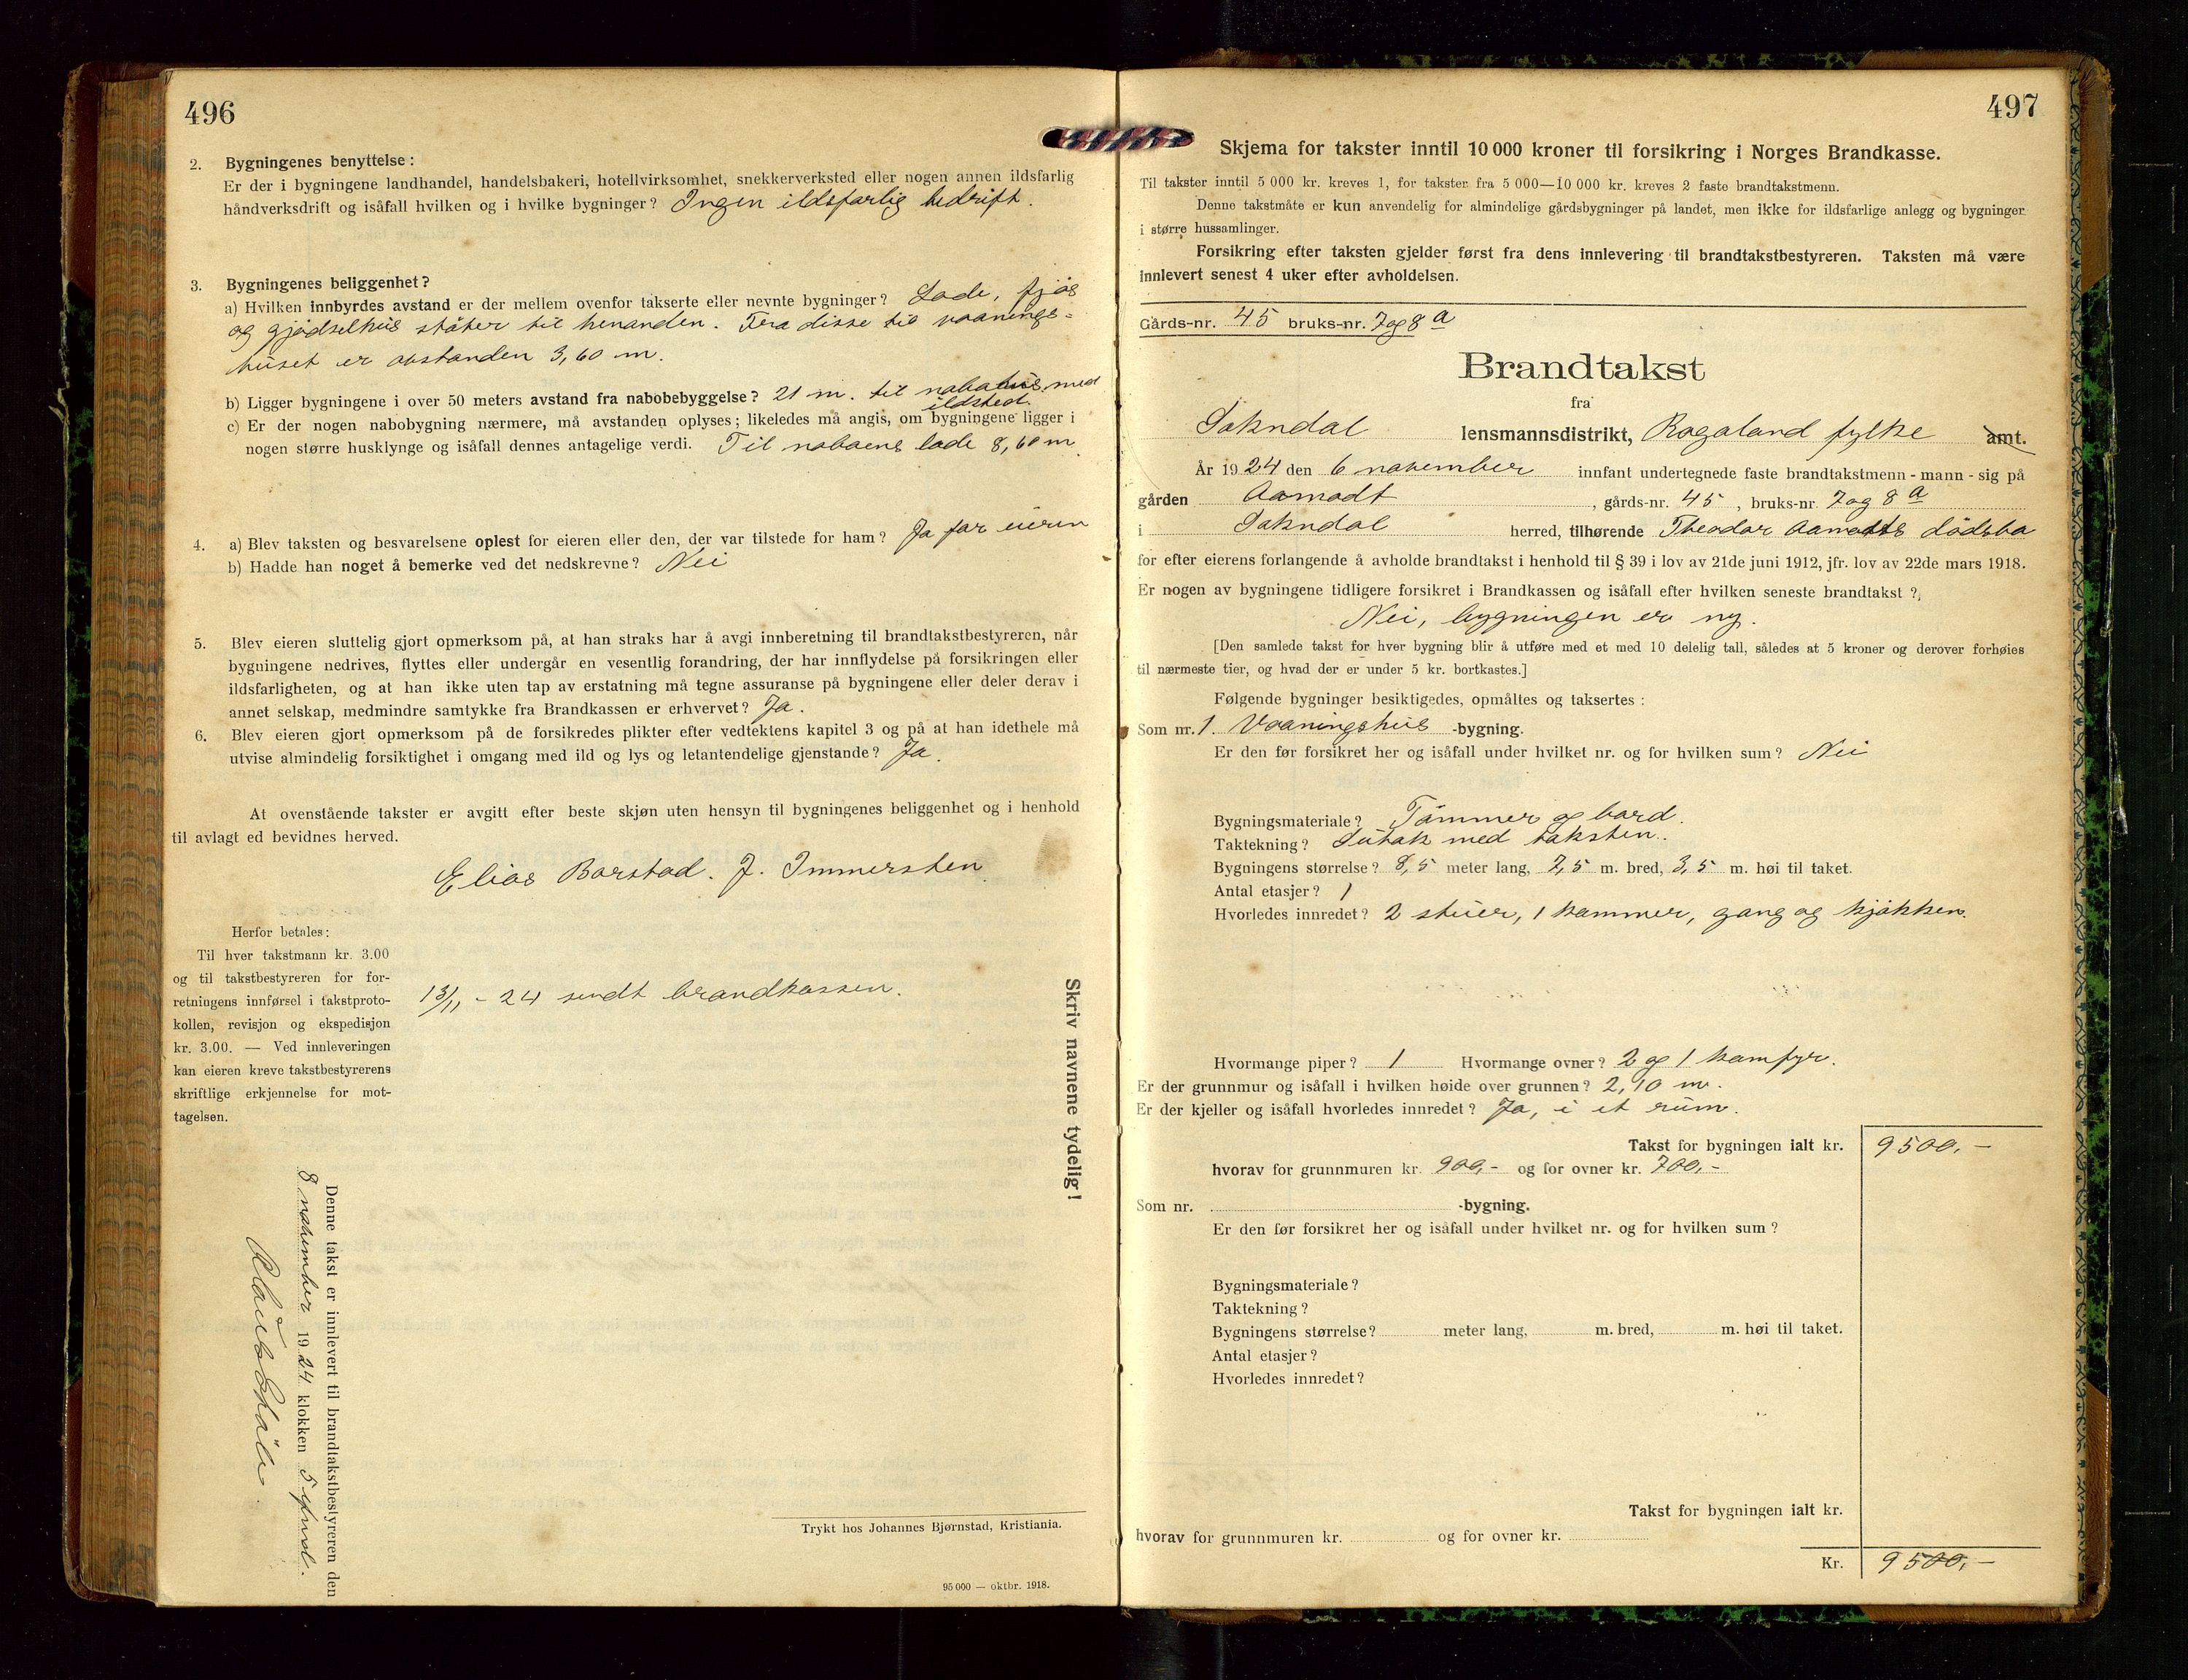 496
2. Bygningenes benyttelse:
Er der i bygningene landhandel, handelsbakeri, hotellvirksomhet, snekkerverksted eller nogen annen ildsfarlig
håndverksdrift og isåfall hvilken og i hvilke bygninger? Ingen ildsfarlig bedrift.
3. Bygningenes beliggenhet?
a) Hvilken innbyrdes avstand er der mellem ovenfor takserte eller nevnte bygninger? Lade, fjøs
og gjødselhus støter til henanden. Fra disse til vaanings-
huset er avstanden 3,60 m.
b) Ligger bygningene i over 50 meters avstand fra nabobebyggelse? 21 m. til nabohus med
ildsted.
c) Er der nogen nabobygning nærmere, må avstanden oplyses; likeledes må angis, om bygningene ligger i
nogen større husklynge og isåfall dennes antagelige verdi. Til naboens lade 8,60 m.
4. a) Blev taksten og besvarelsene oplest for eieren eller den, der var tilstede for ham? Ja for eieren
b) Hadde han noget å bemerke ved det nedskrevne? Nei
5. Blev eieren sluttelig gjort opmerksom på, at han straks har å avgi innberetning til brandtakstbestyreren, når
bygningene nedrives, flyttes eller undergår en vesentlig forandring, der har innflydelse på forsikringen eller
ildsfarligheten, og at han ikke uten tap av erstatning må tegne assuranse på bygningene eller deler derav i
annet selskap, medmindre samtykke fra Brandkassen er erhvervet? Ja.
6. Blev eieren gjort opmerksom på de forsikredes plikter efter vedtektens kapitel 3 og på at han idethele må
utvise almindelig forsiktighet i omgang med ild og lys og letantendelige gjenstande? Ja.
At ovenstående takster er avgitt efter beste skjøn uten hensyn til bygningenes beliggenhet og i henhold
til avlagt ed bevidnes herved.
Elias Barstad. J. Immerstein
Herfor betales:
Til hver takstmann kr. 3.00
og til takstbestyreren for for-
retningens innførsel i takstproto-
kollen, revisjon og ekspedisjon
kr. 3.00. — Ved innleveringen
kan eieren kreve takstbestyrerens
skriftlige erkjennelse for mot-
tagelsen.
13/11 - 24 sendt brandkassen.
Skriv navnene tydelig!
Denne takst er innlevert til brandtakstbestyreren den
8 november 1924 klokken 5 efmd.
Trykt hos Johannes Bjørnstad, Kristiania.
95 000 — oktbr. 1918.
497
Skjema for takster inntil 10 000 kroner til forsikring i Norges Brandkasse.
Til takster inntil 5 000 kr. kreves 1, for takster fra 5 000—10 000 kr. kreves 2 faste brandtakstmenn.
Denne takstmåte er kun anvendelig for almindelige gårdsbygninger på landet, men ikke for ildsfarlige anlegg og bygninger
i større hussamlinger.
Forsikring efter taksten gjelder først fra dens innlevering til brandtakstbestyreren. Taksten må være
innlevert senest 4 uker efter avholdelsen.
Gårds-nr. 45 bruks-nr. 7 og 8 a
Brandtakst
fra
Sokndal lensmannsdistrikt, Rogaland fylke amt.
År 1924 den 6 november innfant undertegnede faste brandtakstmenn - mann - sig på
gården Aamodt, gårds-nr. 45, bruks-nr. 7 og 8 a
i Sokndal herred, tilhørende Theodor Aamodts dødsbo
for efter eierens forlangende å avholde brandtakst i henhold til § 39 i lov av 21de juni 1912, jfr. lov av 22de mars 1918.
Er nogen av bygningene tidligere forsikret i Brandkassen og isåfall efter hvilken seneste brandtakst?
Nei, bygningen er ny.
[Den samlede takst for hver bygning blir å utføre med et med 10 delelig tall, således at 5 kroner og derover forhøies
til nærmeste tier, og hvad der er under 5 kr. bortkastes.]
Følgende bygninger besiktigedes, opmåltes og taksertes:
Som nr. 1. Vaaningshus -bygning.
Er den før forsikret her og isåfall under hvilket nr. og for hvilken sum? Nei
Bygningsmateriale? Tømmer og bord.
Taktekning? Sutak med taksten.
Bygningens størrelse? 8,5 meter lang, 7,5 m. bred, 3,5 m. høi til taket.
Antal etasjer? 1
Hvorledes innredet? 2 stuer, 1 kammer, gang og kjøkken.
Hvormange piper? 1 Hvormange ovner? 2 og 1 komfyr.
Er der grunnmur og isåfall i hvilken høide over grunnen? 2,10 m.
Er der kjeller og isåfall hvorledes innredet? Ja, i et rum.
Takst for bygningen ialt kr. 9500,-
hvorav for grunnmuren kr. 900,- og for ovner kr. 700,-
Som nr. -bygning.
Er den før forsikret her og isåfall under hvilket nr. og for hvilken sum?
Bygningsmateriale?
Taktekning?
Bygningens størrelse? meter lang, m. bred, m. høi til taket.
Antal etasjer?
Hvorledes innredet?
Takst for bygningen ialt kr.
hvorav for grunnmuren kr. og for ovner kr.
Kr. 9500,-